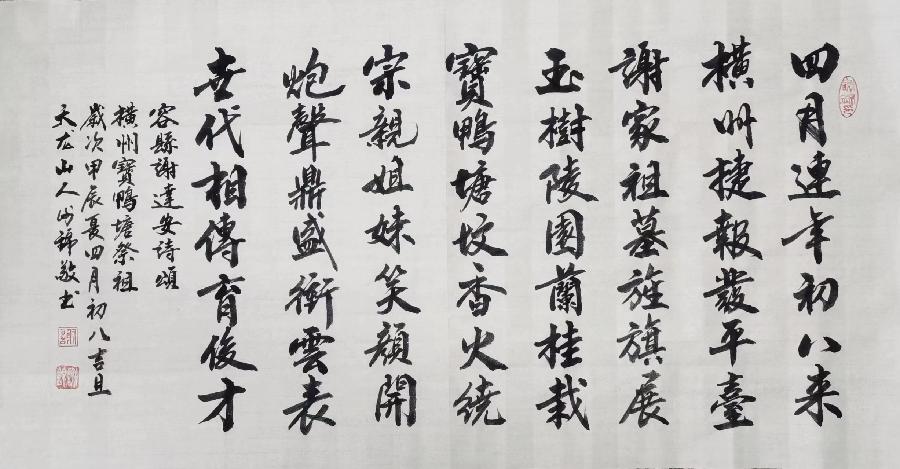 四月連年初八来
橫州捷報發平臺
謝家祖墓旌旗展
玉樹陵園蘭桂栽
寶鴨塘坟香火繞
宗親姐妹笑顔開
炮聲鼎盛衝雲表
世代相傳育俊才
容縣謝達安詩頌
橫州寶鴨塘祭祖
歲次甲辰夏四月初八吉旦
天龙山人錦敬书